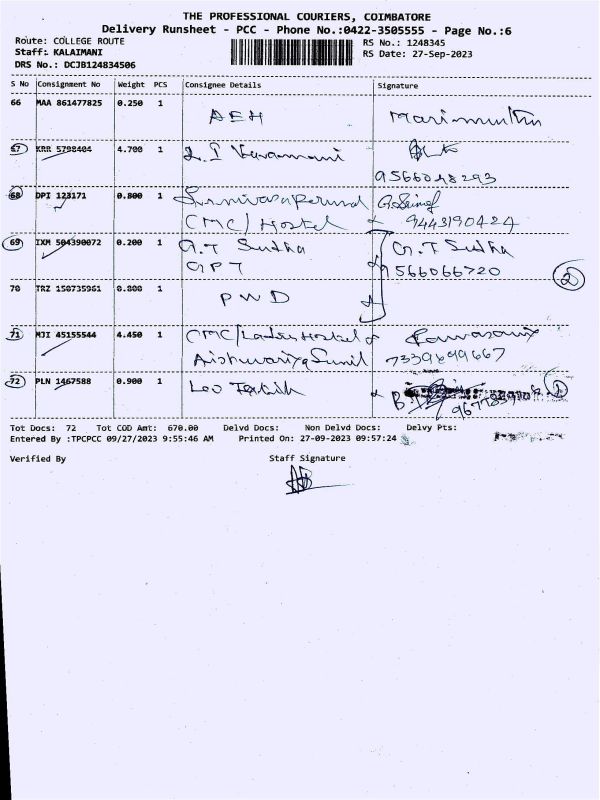 THE PROFESSIONAL COURIERS, COIMBATORE
Delivery Runsheet - PCC - Phone No.:0422-3505555 - Page No.:6
Route: COLLEGE ROUTE RS No.: 1248345
Staff: KALAIMANI RS Date: 27-Sep-2023
DRS No.: DCJB124834506
S No Consignment No Weight PCS Consignee Details Signature
66 MAA 861477825 0.250 1 AEH Marimuthu
67 KRR 5798404 4.700 1
9566048293
68 DPI 123171 0.800 1 Srinivasaperumal
CMC/Hostel 9443190424
69 IXM 504390072 0.200 1 G.T Sudha G.T Sudha
GPT 9566066720
2
70 TRZ 150735961 0.800 1 PWD
71 MJI 45155544 4.450 1 CMC/Ladies Hostel
Aishwariya Sunil 7339699667
72 PLN 1467588 0.900 1 Leo
Tot Docs: 72 Tot COD Amt: 670.00 Delvd Docs: Non Delvd Docs: Delvy Pts:
Entered By :TPCPCC 09/27/2023 9:55:46 AM Printed On: 27-09-2023 09:57:24
Verified By Staff Signature